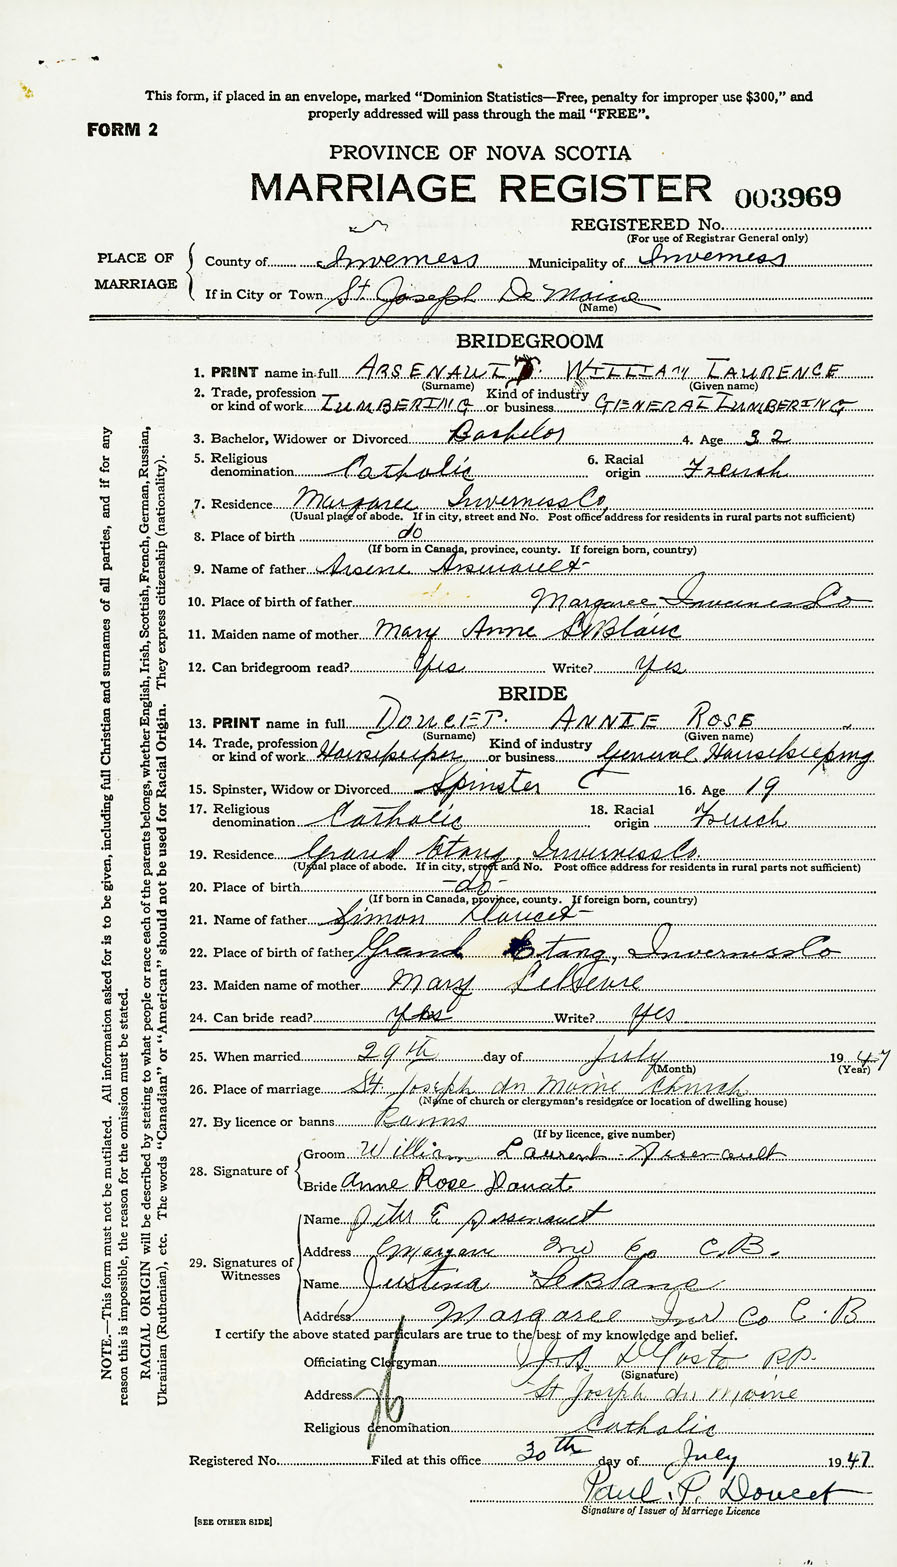 This form, if placed in an envelope, marked "Dominion Statistics—Free, penalty for improper use $300," and
properly addressed will pass through the mail "FREE".
FORM 2
PROVINCE OF NOVA SCOTIA
MARRIAGE REGISTER 003969
REGISTERED No.
(For use of Registrar General only)
PLACE OF MARRIAGE
County of Inverness Municipality of Inverness
If in City or Town St. Joseph De Moine
(Name)
BRIDEGROOM
1. PRINT name in full ARSENAULT. WILLIAM LAURENCE
(Surname) (Given name)
2. Trade, profession or kind of work LUMBERING Kind of industry or business GENERAL LUMBERING
3. Bachelor, Widower or Divorced Bachelor 4. Age 32
5. Religious denomination Catholic 6. Racial origin French
7. Residence Margaree Inverness Co,
(Usual place of abode. If in city, street and No. Post office address for residents in rural parts not sufficient)
8. Place of birth do
(If born in Canada, province, county. If foreign born, country)
9. Name of father Arsene Arsenault
10. Place of birth of father Margaree Inverness Co
11. Maiden name of mother Mary Anne LeBlanc
12. Can bridegroom read? Yes Write? Yes
BRIDE
13. PRINT name in full DOUCET. ANNIE ROSE
(Surname) (Given name)
14. Trade, profession or kind of work Housekeeper Kind of industry or business General Housekeeping
15. Spinster, Widow or Divorced Spinster 16. Age 19
17. Religious denomination Catholic 18. Racial origin French
19. Residence Grand Etang, Inverness Co.
(Usual place of abode. If in city, street and No. Post office address for residents in rural parts not sufficient)
20. Place of birth -do-
(If born in Canada, province, county. If foreign born, country)
21. Name of father Simon Doucet
22. Place of birth of father Grand Etang, Inverness Co
23. Maiden name of mother Mary
24. Can bride read? Yes Write? Yes.
25. When married 29th day of July 1947
(Month) (Year)
26. Place of marriage St. Joseph du Moine Church
(Name of church or clergyman's residence or location of dwelling house)
27. By licence or banns Banns
(If by licence, give number)
28. Signature of
Groom William Laurent Arsenault
Bride Anne Rose Doucet
29. Signatures of Witnesses
Name Peter E Arsenault
Address Margaree Inv Co C.B.
Name Justina LeBlanc
Address Margaree Inv Co C.B
I certify the above stated particulars are true to the best of my knowledge and belief.
Officiating Clergyman J.A. DCosta P.P.
(Signature)
Address St Joseph du Moine
Religious denomination Catholic
Registered No. Filed at this office 30th day of July 1947
Paul P. Doucet
Signature of Issuer of Marriege Licence
[SEE OTHER SIDE]
NOTE.—This form must not be mutilated. All information asked for is to be given, including full Christian and surnames of all parties, and if for any
reason this is impossible, the reason for the omission must be stated.
RACIAL ORIGIN will be described by stating to what people or race each of the parents belongs, whether English, Irish, Scottish, French, German, Russian,
Ukrainian (Ruthenian), etc. The words "Canadian" or "American" should not be used for Racial Origin. They express citizenship (nationality).